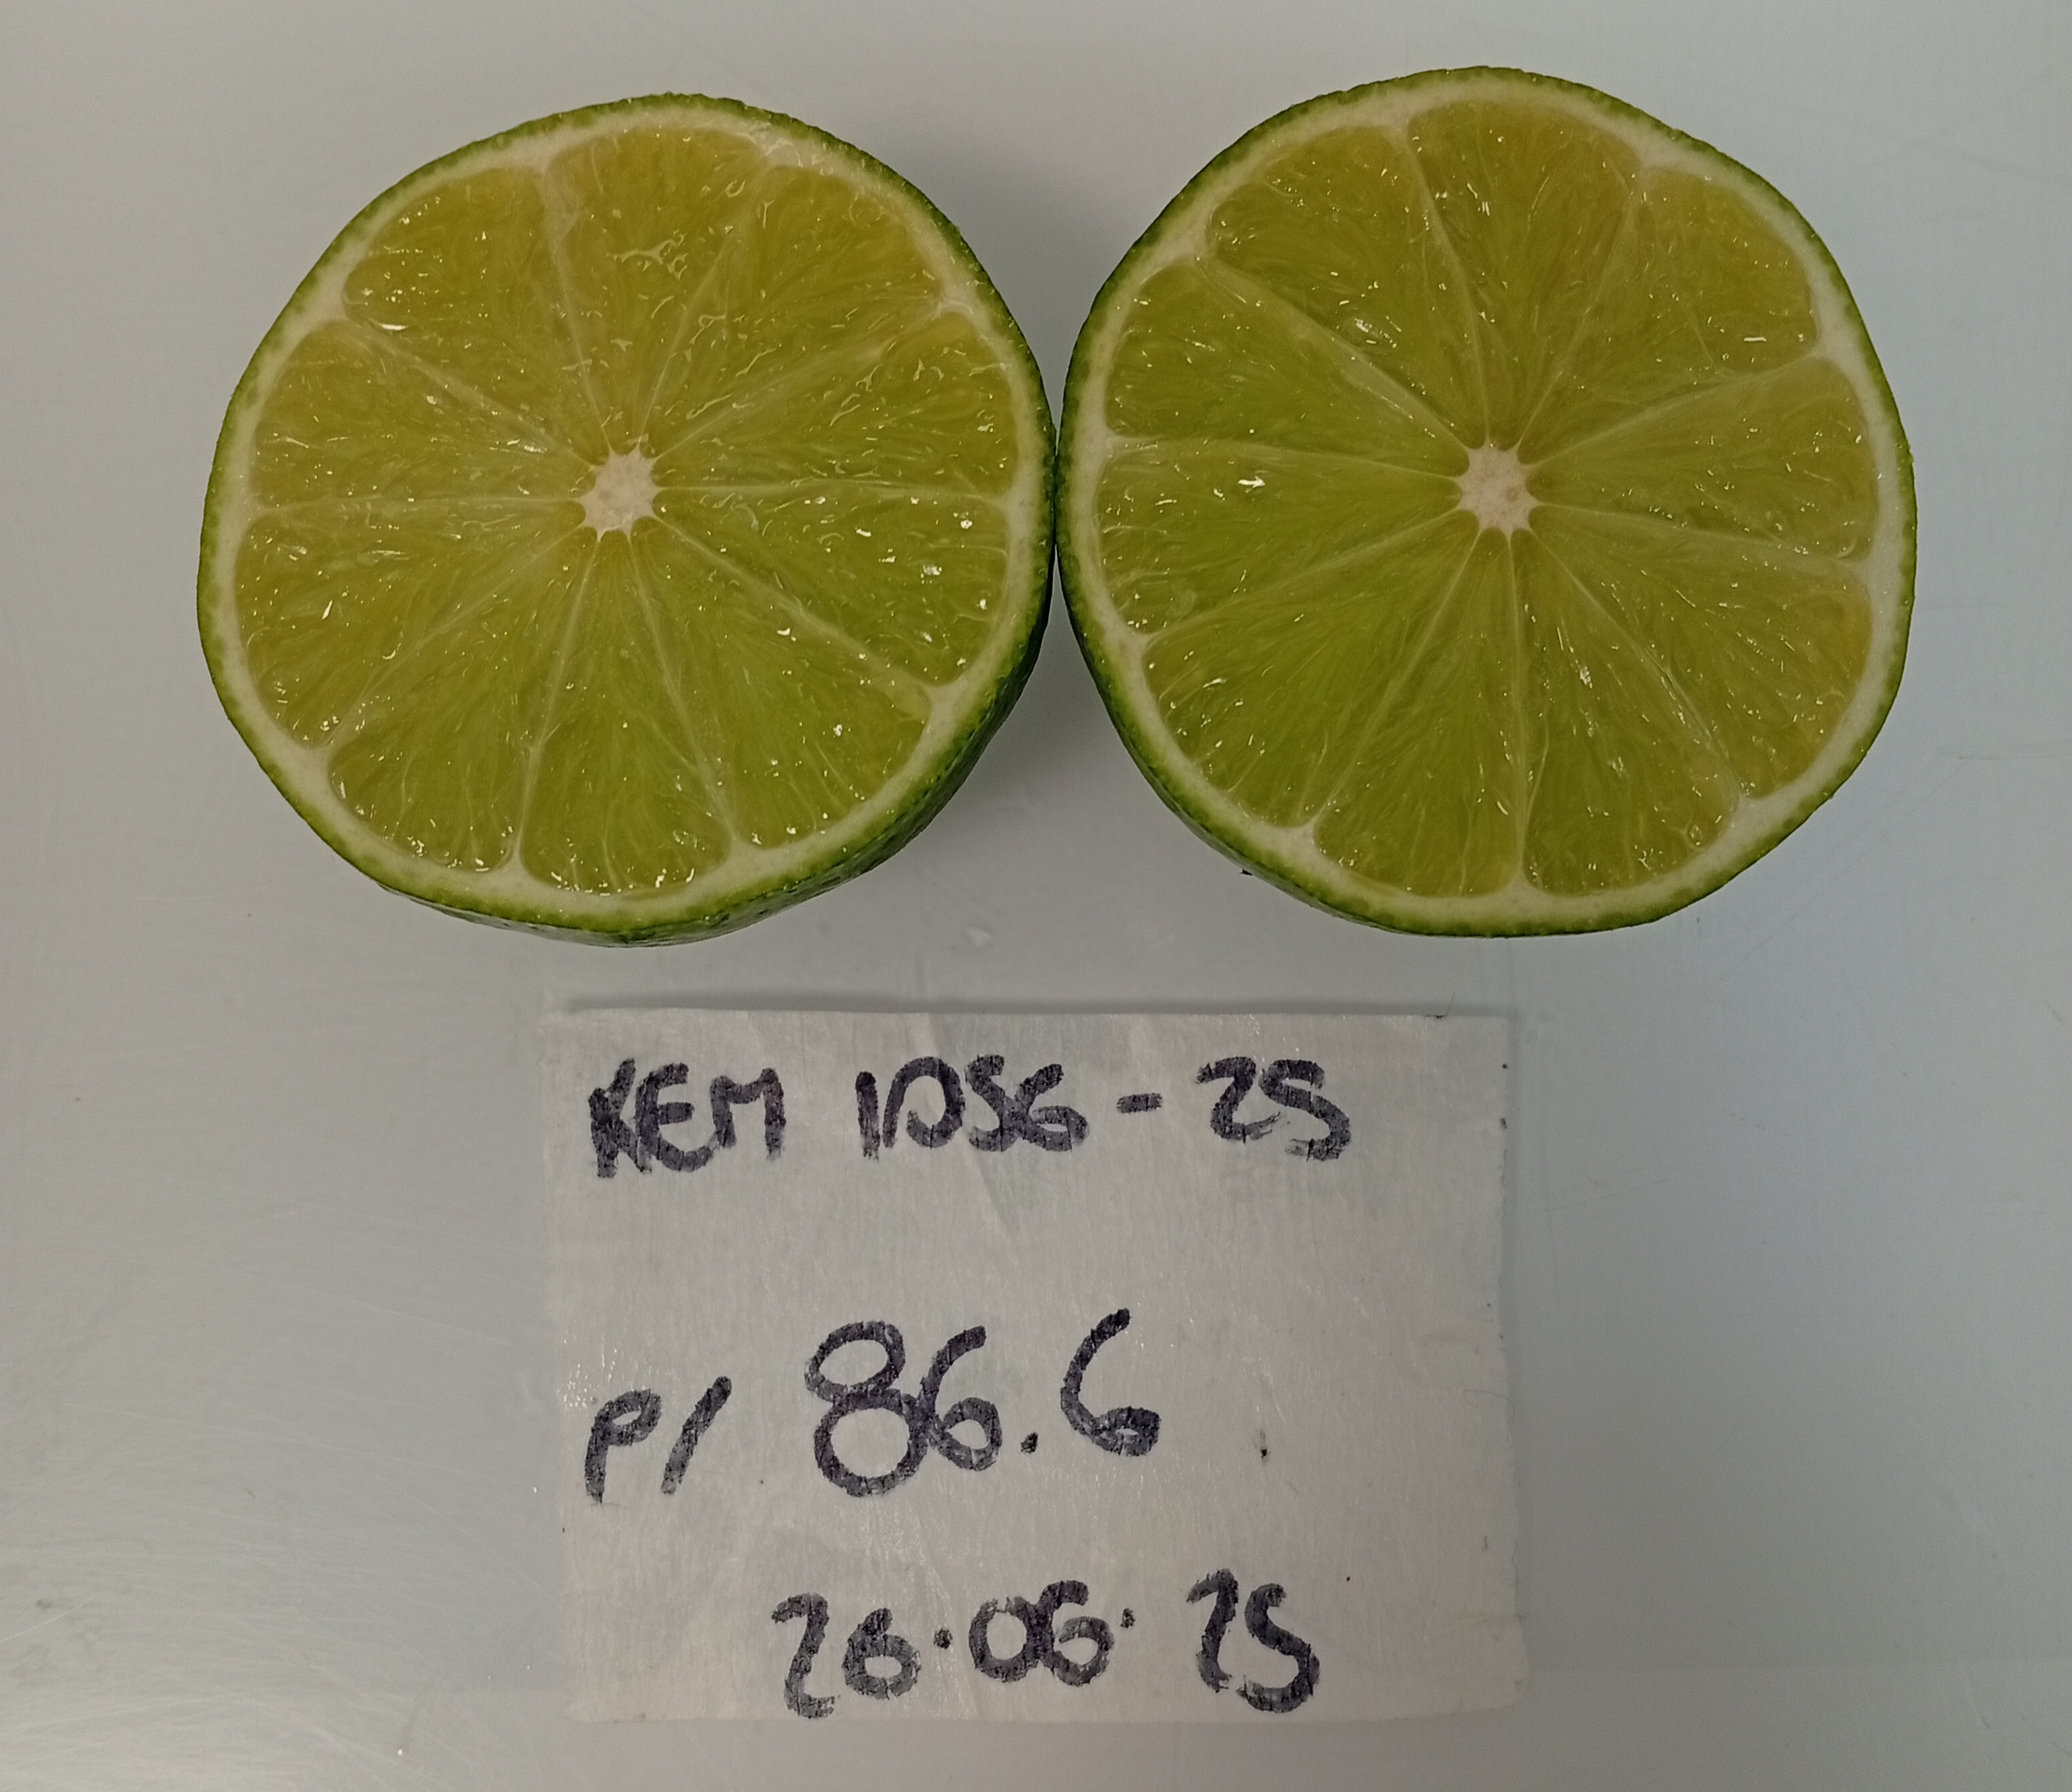 KEM 1056-25
P/ 86.6
26.06.25